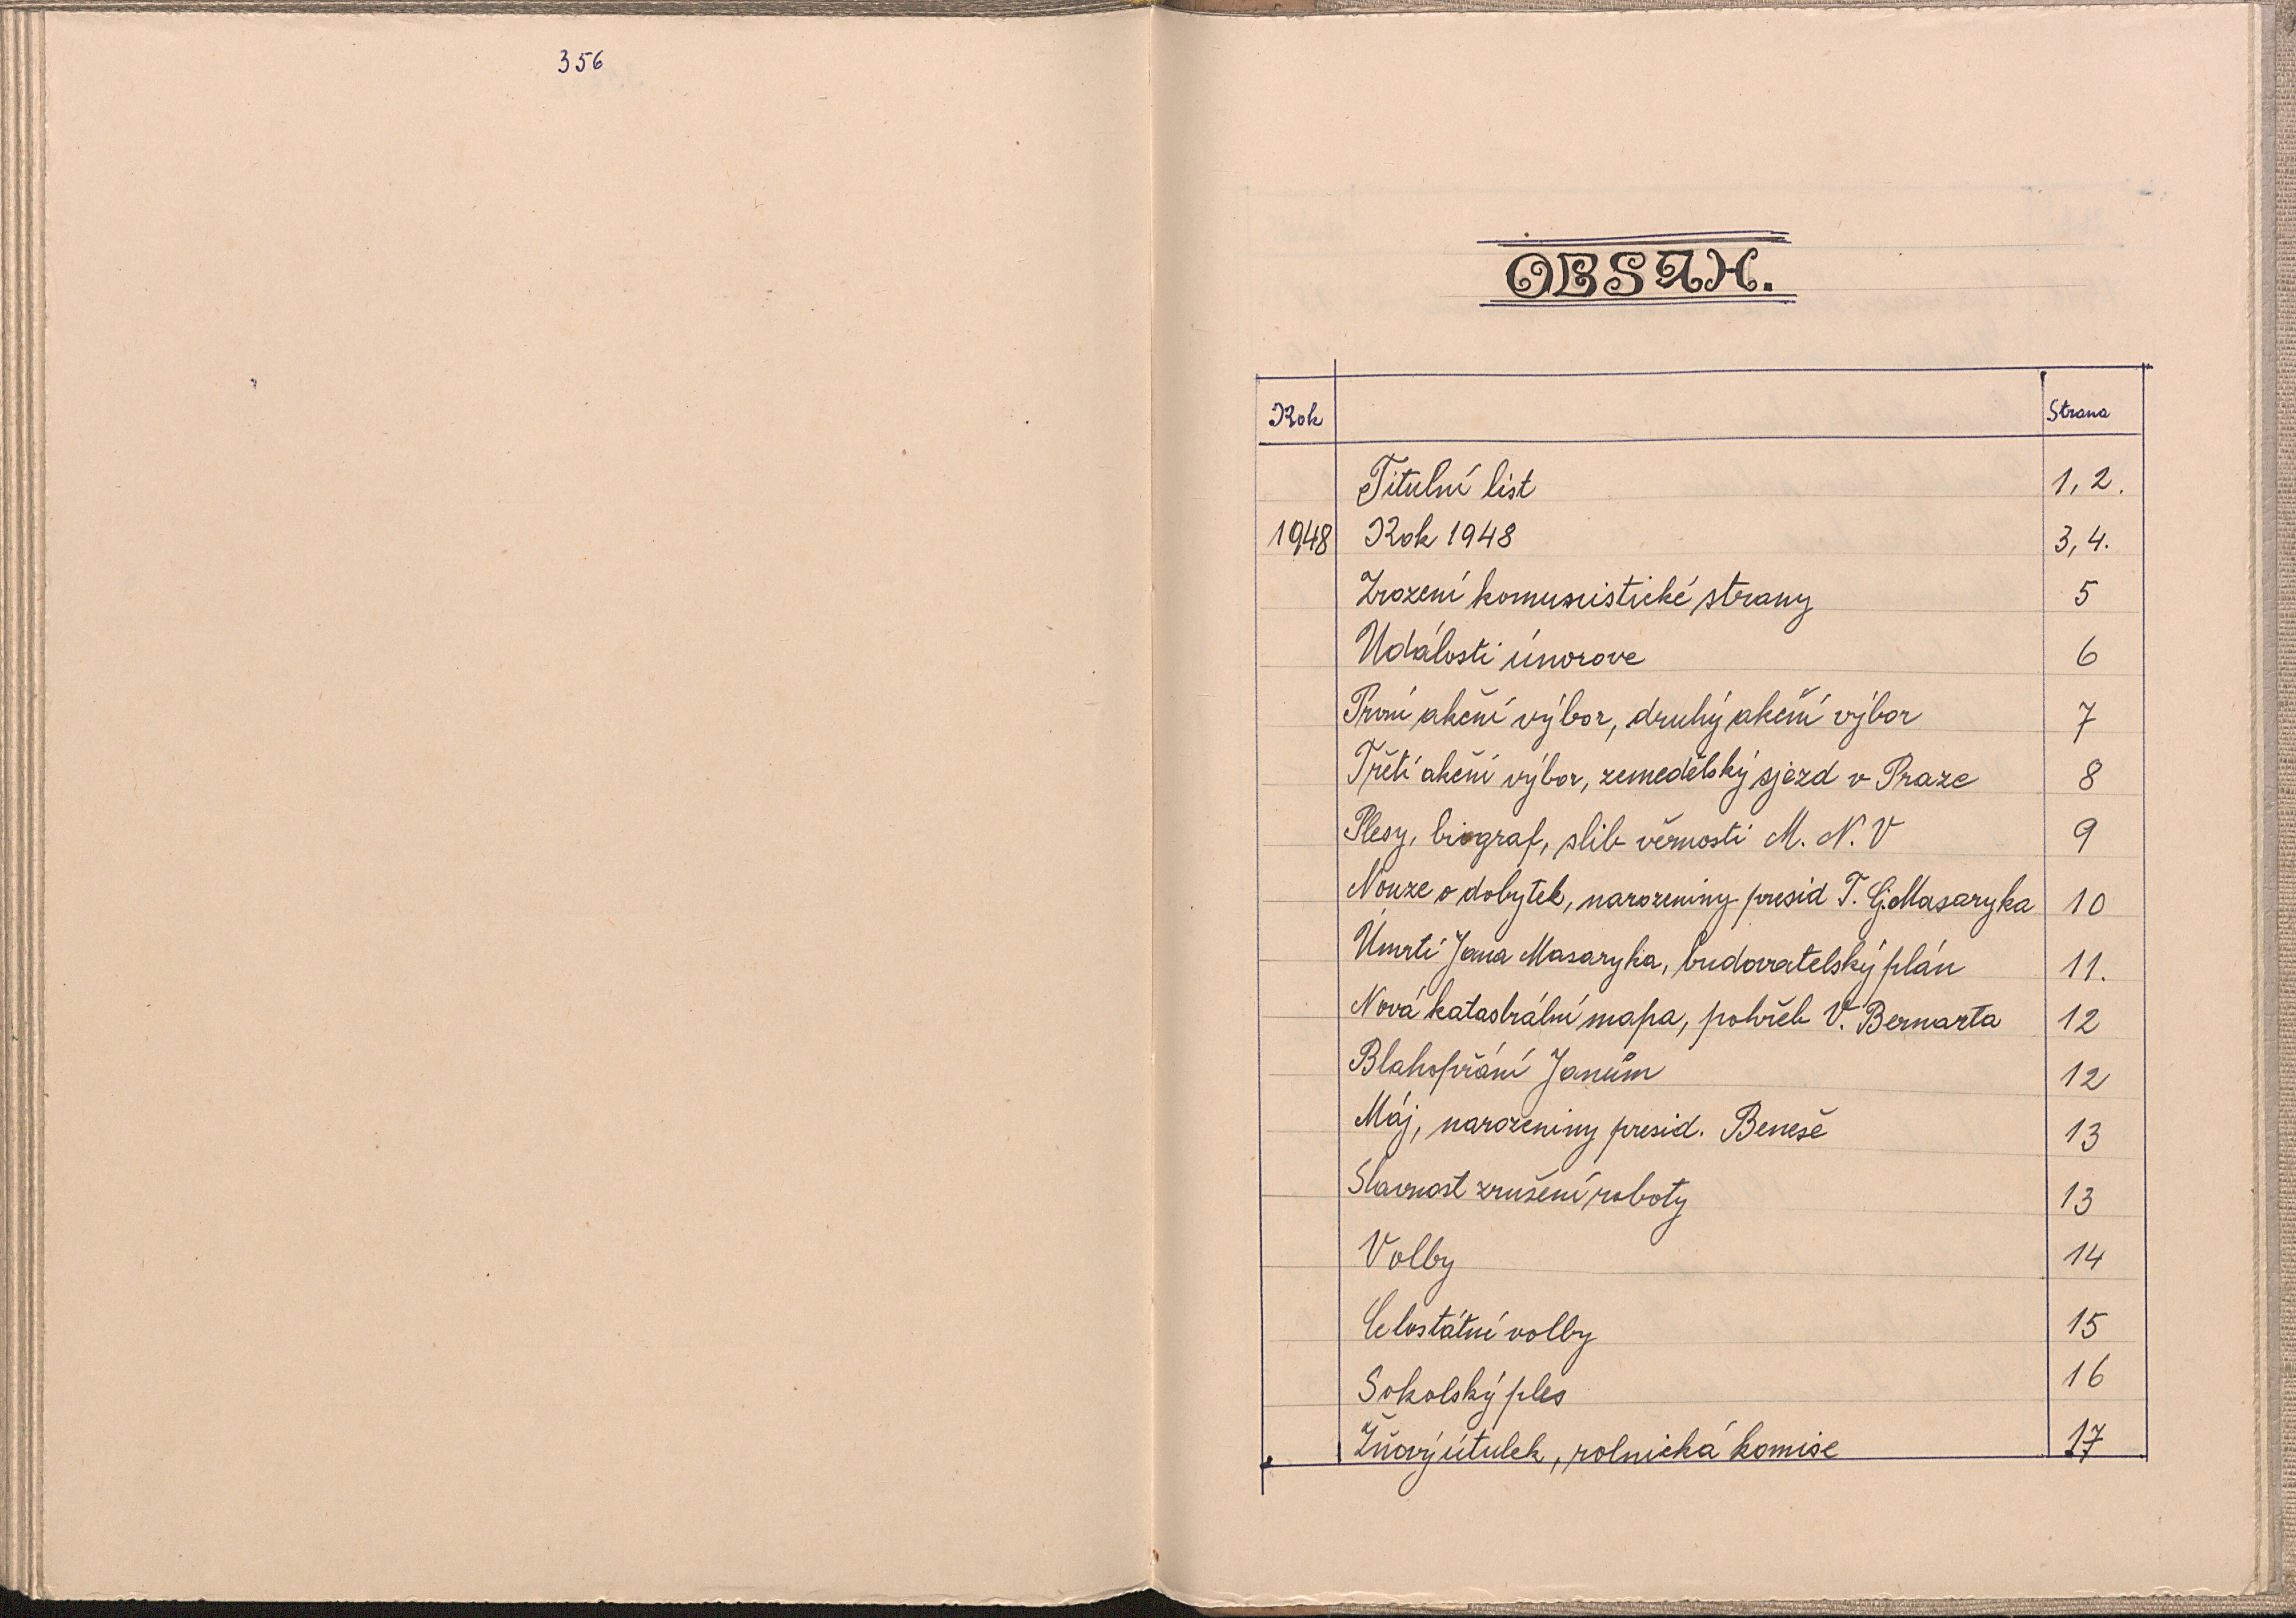 356
OBSAH.
Rok Strana
Titulní list 1, 2.
1948 Rok 1948 3, 4.
Zrození komunistické strany 5
Události únorove 6
První akční výbor, druhý akční výbor 7
Třetí akční výbor, zemedělský sjezd v Praze 8
Plesy, biograf, slib věrnosti M. N. V 9
Nouze o dobytek, narozeniny presid T. G. Masaryka 10
Úmrtí Jana Masaryka, budovatelský plán 11.
Nová katastrální mapa, pohřeb V. Bernarta 12
Blahopřání Janům 12
Máj, narozeniny presid. Beneše 13
Slavnost zrušení roboty 13
Volby 14
Celostátní volby 15
Sokolský ples 16
Žňový útulek, rolnická komise 17